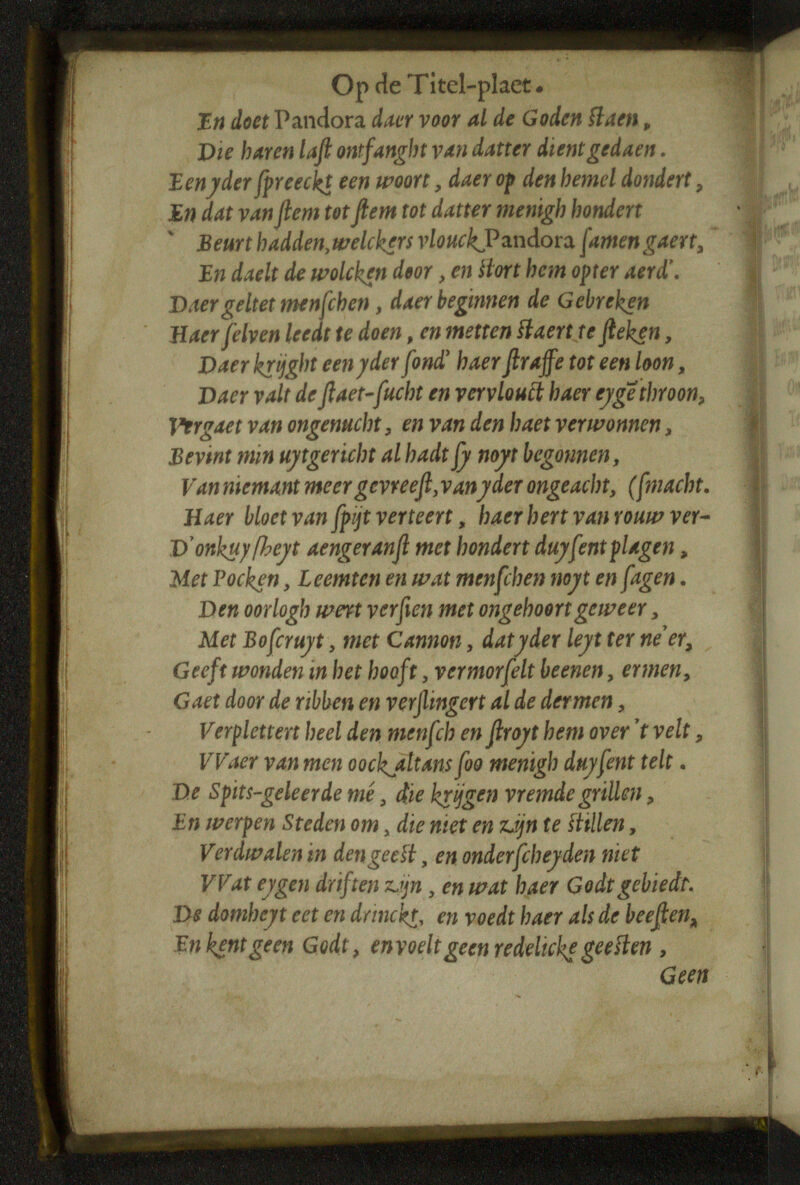 Op de Titel-plaet.
En doet Pandora daer voor al de Goden staen,
Die haren last ontfanght van datter dient gedaen.
Een yder spreeckt een woort, daer op den hemel dondert,
En dat van stem tot stem tot datter menigh hondert
Beurt hadden, welckers vlouck Pandora samen gaert,
En daelt de wolcken door, en stort hem opter aerd'.
Daer geltet menschen, daer beginnen de Gebreken
Haer selven leedt te doen, en metten staert te steken,
Daer krijght een yder sond' haer straffe tot een loon,
Daer valt de staet-sucht en vervlouct haer eygē throon,
Vergaet van ongenucht, en van den haet verwonnen,
Bevint min uytgericht al hadt sy noyt begonnen,
Van niemant meer gevreest, van yder ongeacht, (smacht.
Haer bloet van spijt verteert, haer hert van rouw ver-
D'onkuysheyt aengeranst met hondert duysent plagen,
Met Pocken, Leemten en wat menschen noyt en sagen.
Den oorlogh wert versien met ongehoort geweer,
Met Boscruyt, met Cannon, dat yder leyt ter ne'er,
Geeft wonden in het hooft, vermorselt beenen, ermen,
Gaet door de ribben en verslingert al de dermen,
Verplettert heel den mensch en stroyt hem over 't velt,
VVaer van men oock altans soo menigh duysent telt.
De Spits-geleerde mé, die krijgen vremde grillen,
En werpen Steden om, die niet en zijn te stillen,
Verdwalen in den geest, en onderscheyden niet
VVat eygen driften zijn, en wat haer Godt gebiedt.
De domheyt eet en drinckt, en voedt haer als de beesten,
En kent geen Godt, en voelt geen redelicke geesten,
Geen